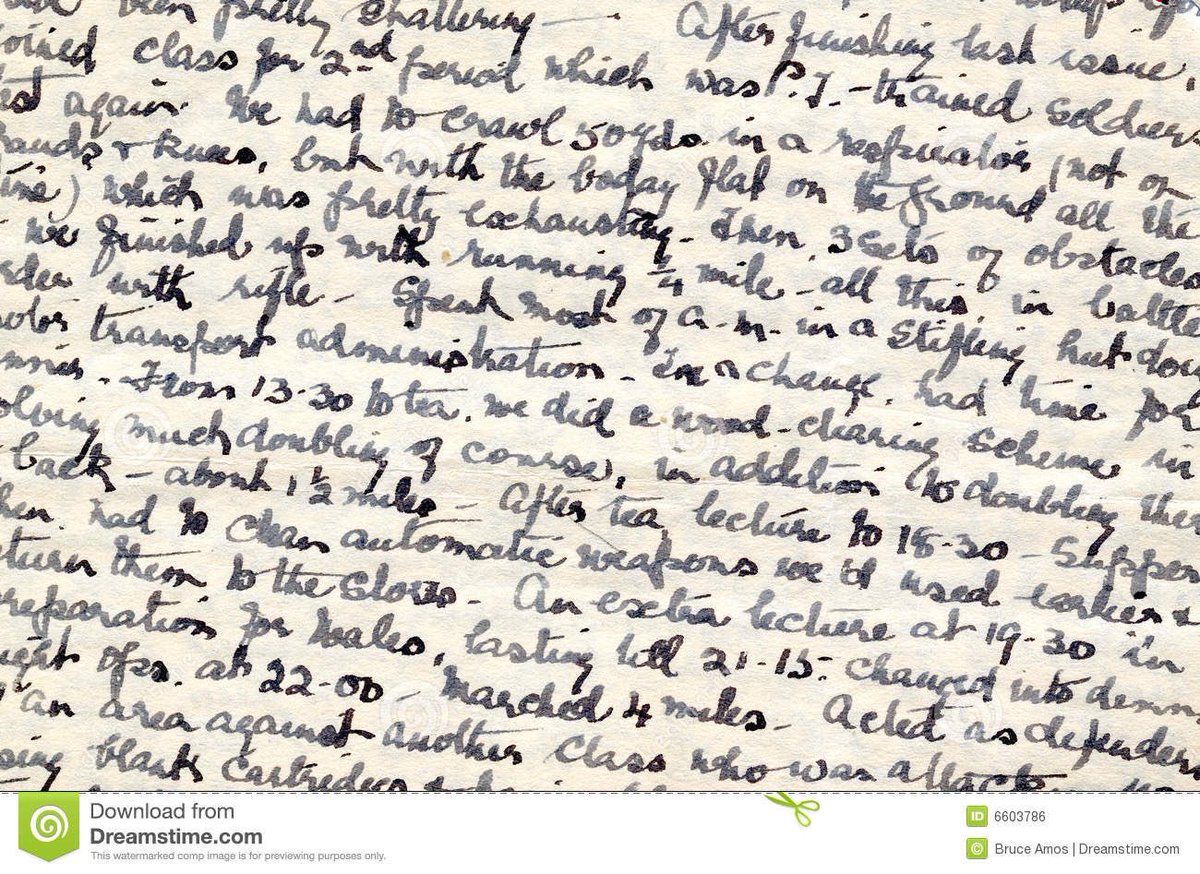 been pretty shattering — After finishing last issue,
joined class for 2nd period which was P.T. - trained soldiers
again. We had to crawl 50 yds. in a respirator (not on
hands & knees, but with the boday flat on the ground all the
which was pretty exhausting. Then 3 sets of obstacles
we finished up with running ¼ mile - all this, in battle
with rifle - Spent most of a.m. in a stifling hut doing
transport administration. In a change, had time for
From 13-30 to tea, we did a wood-clearing scheme in
much doubling of course, in addition to doubling there
back - about 1½ miles. After tea, lecture to 18-30 - Supper
had to clean automatic weapons we'd used earlier &
them to the stores. An extra lecture at 19-30 in
preparation for Wales, lasting till 21-15. Changed into
Ops. at 22-00 - Marched 4 miles. Acted as defenders
an area against another class who was
blank cartridges
Download from
Dreamstime.com
This watermarked comp image is for previewing purposes only.
ID 6603786
© Bruce Amos | Dreamstime.com